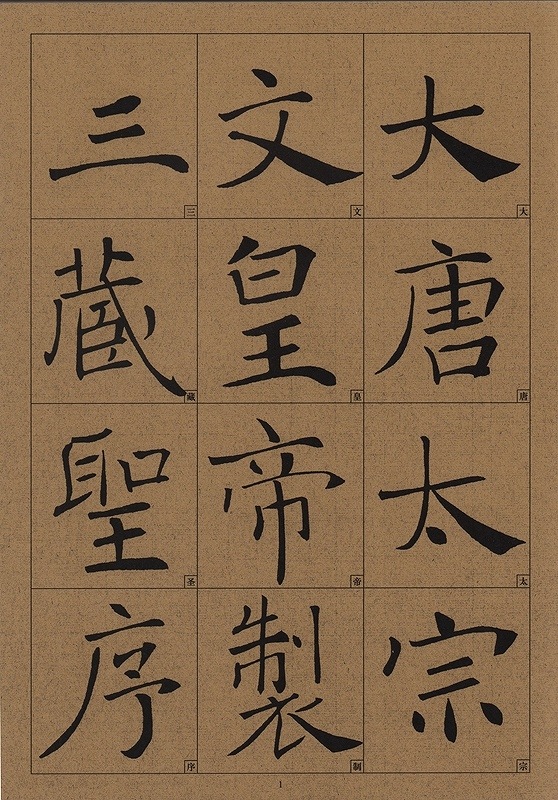 大唐太宗
文皇帝製
三藏聖序
大
唐
太
宗
文
皇
帝
制
三
藏
圣
序
1